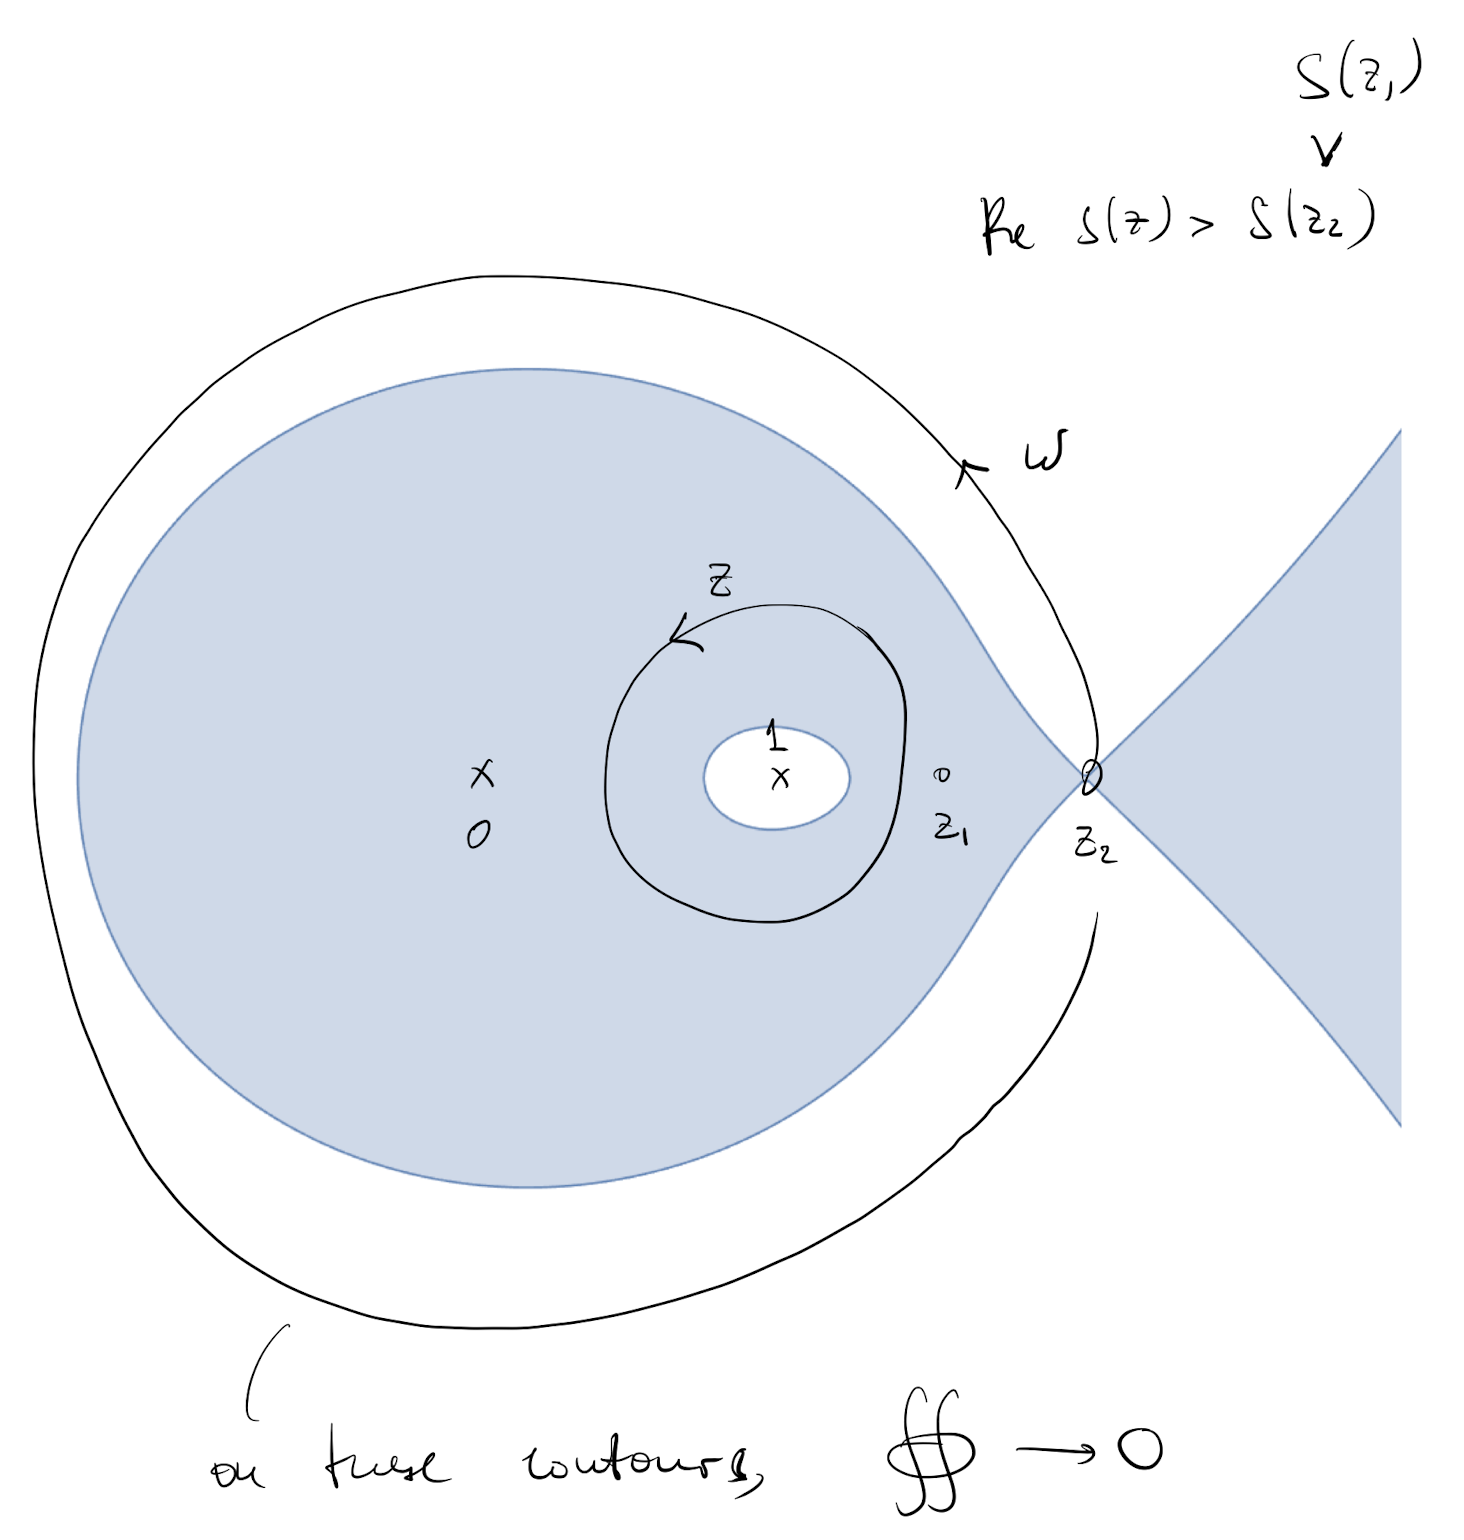 S(z₁)
∨
Re S(z) > S(z₂)
w
z
1
x x
0
z₁
z₂
on these contours, ∯ → 0